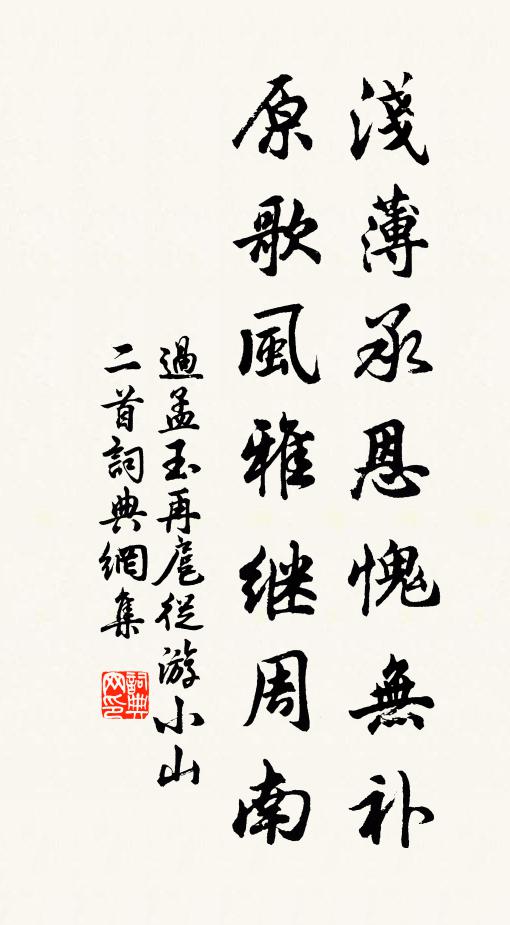 淺薄承恩愧無补
原歌風雅继周南
過孟玉再扈從游小山
二首詞典網集
詞典网印